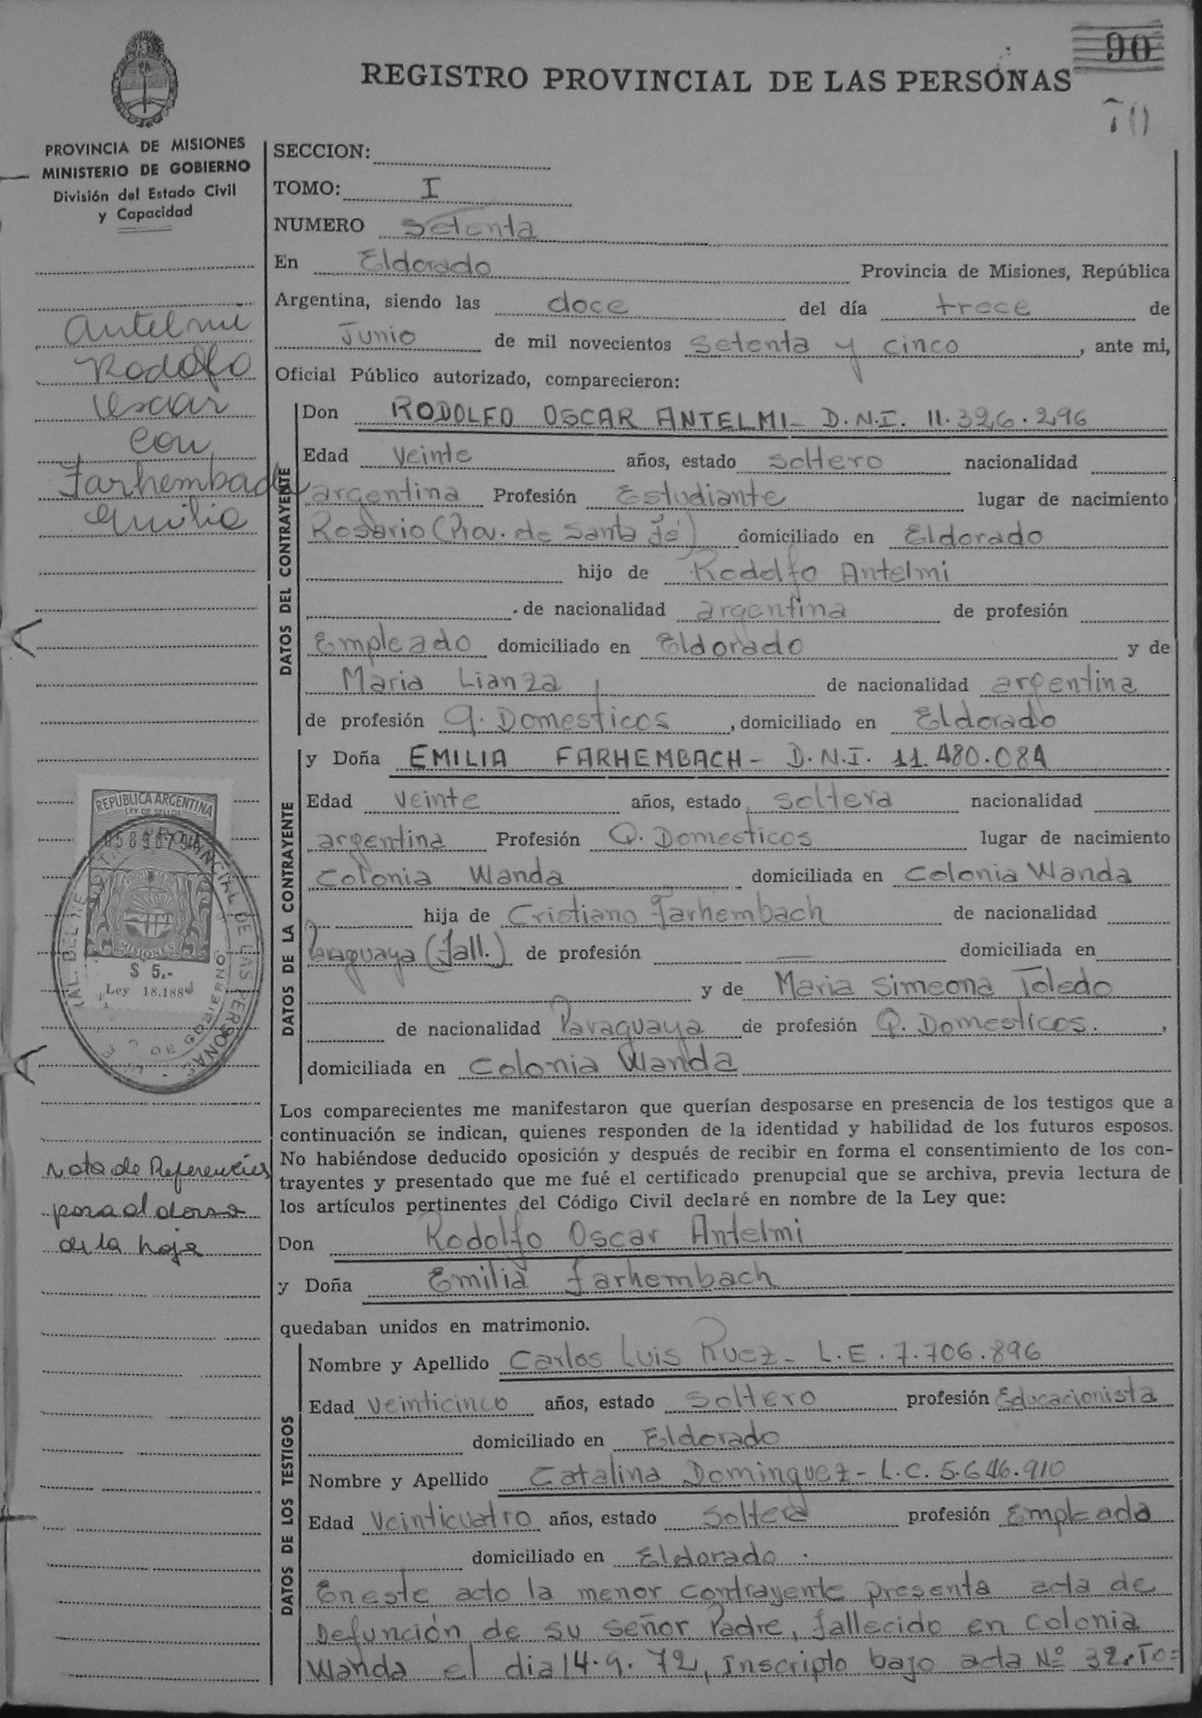 90
REGISTRO PROVINCIAL DE LAS PERSONAS
70
PROVINCIA DE MISIONES
MINISTERIO DE GOBIERNO
División del Estado Civil
y Capacidad
SECCION:
TOMO: I
NUMERO Setenta
En Eldorado Provincia de Misiones, República
Argentina, siendo las doce del día trece de
Junio de mil novecientos Setenta y cinco, ante mi,
Oficial Público autorizado, comparecieron:
Antelmi
Rodolfo
Oscar
con
Farhembach
Emilia
DATOS DEL CONTRAYENTE
Don RODOLFO OSCAR ANTELMI- D.N.I. 11.326.296
Edad Veinte años, estado Soltero nacionalidad
argentina Profesión Estudiante lugar de nacimiento
Rosario (Prov. de Santa Fé) domiciliado en Eldorado
hijo de Rodolfo Antelmi
de nacionalidad argentina de profesión
Empleado domiciliado en Eldorado y de
Maria Lianza de nacionalidad argentina
de profesión Q. Domesticos, domiciliado en Eldorado
DATOS DE LA CONTRAYENTE
y Doña EMILIA FARHEMBACH- D.N.I. 11.480.084
Edad Veinte años, estado Soltera nacionalidad
argentina Profesión Q. Domesticos lugar de nacimiento
Colonia Wanda domiciliada en Colonia Wanda
hija de Cristiano Farhembach de nacionalidad
Paraguaya (fall.) de profesión — domiciliada en
y de Maria Simeona Toledo
de nacionalidad Paraguaya de profesión Q. Domesticos.,
domiciliada en Colonia Wanda
REPUBLICA ARGENTINA
LEY DE SELLOS
MISIONES
$ 5.-
Ley 18.188
Los comparecientes me manifestaron que querían desposarse en presencia de los testigos que a
continuación se indican, quienes responden de la identidad y habilidad de los futuros esposos.
No habiéndose deducido oposición y después de recibir en forma el consentimiento de los con-
trayentes y presentado que me fué el certificado prenupcial que se archiva, previa lectura de
los artículos pertinentes del Código Civil declaré en nombre de la Ley que:
Nota de Referencias
pasa al dorso
de la hoja
Don Rodolfo Oscar Antelmi
y Doña Emilia Farhembach
quedaban unidos en matrimonio.
DATOS DE LOS TESTIGOS
Nombre y Apellido Carlos Luis Ruez- L.E. 7.706.896
Edad Veinticinco años, estado Soltero profesión Educacionista
domiciliado en Eldorado
Nombre y Apellido Catalina Dominguez- L.C. 5.646.910
Edad Veinticuatro años, estado Soltera profesión Empleada
domiciliado en Eldorado.
En este acto la menor contrayente presenta acta de
Defunción de su señor Padre, fallecido en Colonia
Wanda el dia 14.9.72, Inscripto bajo acta Nº 32. To=